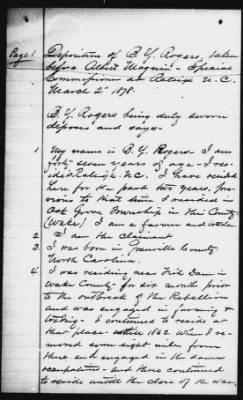 Page 1
Deposition of B. Y. Rogers, taken
before Albert Magruin - Special
Commissioner at Raleigh N. C.
March 2d 1878.
B. Y. Rogers being duly sworn
deposes and says -
1 My name is B. Y. Rogers. I am
forty seven years of age - I re-
side Raleigh N.C. I have resided
here for the past two years, pre-
vious to that time I resided in
Oak Grove Township in this County
(Wake) I am a farmer and
2 I am the claimant
3 I was born in Granville County
North Carolina.
4 I was residing near Fish Dam in
Wake County for six months prior
to the outbreak of the Rebellion
and was engaged in farming &
trading - I continued to reside at
that place - untill 1862. When I re-
moved some eight miles from
there and engaged in the same
occupation - and there continued
to reside untill the close of the war,